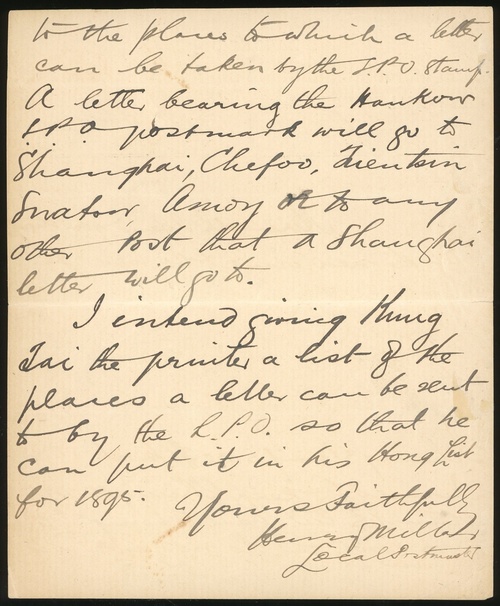 to the places to which a letter
can be taken by the L.P.O. stamp.
A letter bearing the Hankow
L.P.O postmark will go to
Shanghai, Chefoo, Tientsin
Swatow, Amoy or to any
other Post that a Shanghai
letter will go to.
I intend giving Kung
Tai the printer a list of the
places a letter can be sent
to by the L.P.O. so that he
can put it in his Hong List
for 1895.
Yours Faithfully
Henry Millar
Local Postmaster